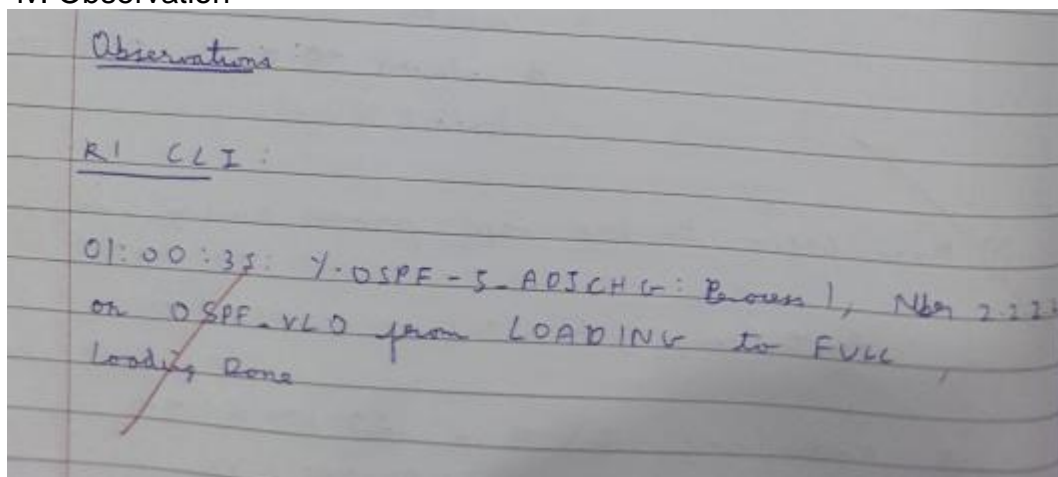 IV. Observation
Observations :
R1 CLI :
01:00:35: %OSPF-5-ADJCHG: Process 1, Nbr 2.2.2.
on OSPF_VL0 from LOADING to FULL,
Loading Done